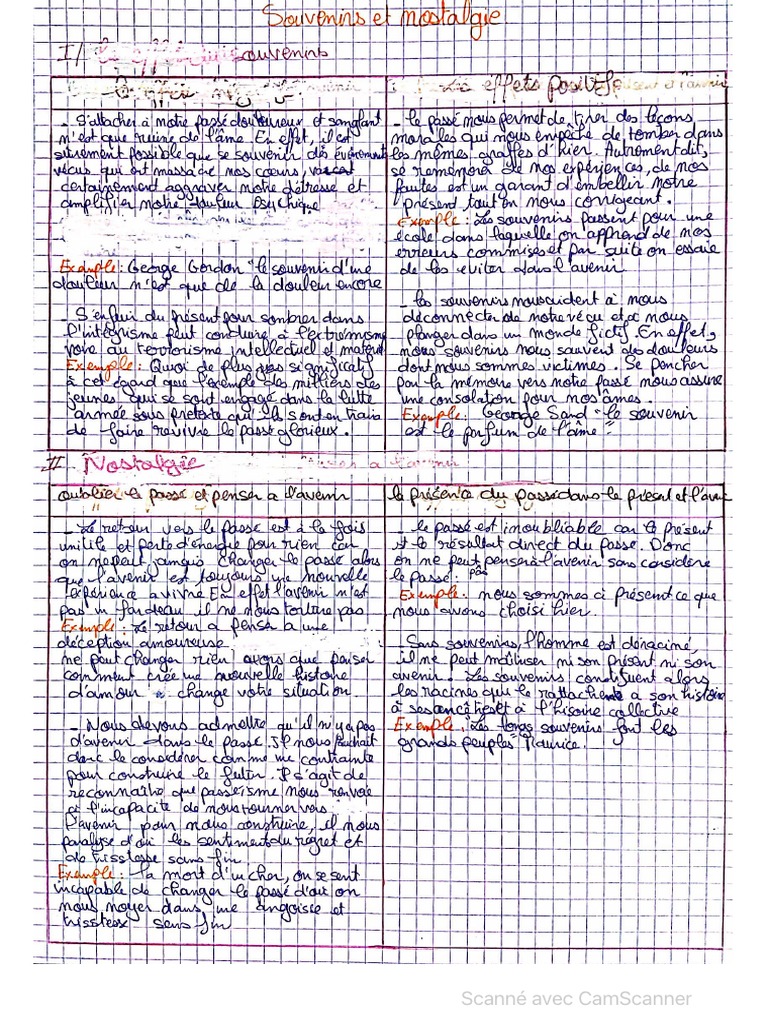 Souvenirs et nostalgie
I/ souvenirs
effets positifs
- S'attacher à notre passé douloureux et sanglant
n'est que ruine de l'âme En effet, il est
sûrement possible que se souvenir des évènements
vécus qui ont massacré nos cœurs, va
certainement aggraver notre détresse et
amplifier notre douleur psychique
Exemple: George Gordon "le souvenir d'une
douleur n'est que de la douleur encore
- S'enfuir du présent pour sombrer dans
l'intégrisme peut conduire à l'extrémisme
voire au terrorisme intellectuel et matériel
Exemple: Quoi de plus significatif
à cet égard que l'exemple des milliers des
jeunes qui se sont engagé dans la lutte
armée sous prétexte qu'ils sont en train
de faire revivre le passé glorieux.
- le passé nous permet de tirer des leçons
morales qui nous empêche de tomber dans
les mêmes griffes d'hier. Autrement dit,
se remémorer de nos expériences, de nos
fautes est un garant d'embellir notre
présent tout en nous corrigeant.
Exemple: Les souvenirs passent pour une
école dans laquelle on apprend de nos
erreurs commises et par suite on essaie
de les éviter dans l'avenir
- les souvenirs nous aident à nous
déconnecter de notre vécu et à nous
plonger dans un monde fictif. En effet,
nous souvenirs nous sauvent des douleurs
dont nous sommes victimes. Se pencher
par la mémoire vers notre passé nous assure
une consolation pour nos âmes.
Exemple: George Sand "le souvenir
est le parfum de l'âme"
II Nostalgie
oublier le passé et penser a l'avenir
la présence du passé dans le présent et l'avenir
- Le retour vers le passé est à la fois
inutile et perte d'énergie pour rien car
on ne peut jamais changer le passé alors
que l'avenir est toujours une nouvelle
expérience a vivre En effet l'avenir n'est
pas un fardeau il ne nous torture pas
Exemple: Le retour a penser a une
déception amoureuse
ne peut changer rien alors que penser
comment crée une nouvelle histoire
d'amour change votre situation
- Nous devons admettre qu'il n'y a pas
d'avenir dans le passé. Il nous faudrait
donc le considérer comme une contrainte
pour construire le futur. Il s'agit de
reconnaitre que passéisme nous renvoie
à l'incapacité de nous tourner vers
l'avenir pour nous construire, il nous
paralyse d'où les sentiment du regret et
de trisstesse sans fin
Exemple: la mort d'un cher, on se sent
incapable de changer le passé d'où on
nous noyer dans une angoisse et
trisstesse sans fin
- le passé est inoubliable car le présent
est le résultat direct du passé. Donc
on ne peut penser à l'avenir sans considéré
le passé.
Exemple: nous sommes à présent ce que
nous avons choisi hier.
Sans souvenirs, l'homme est déraciné,
il ne peut maîtriser ni son présent ni son
avenir. Les souvenirs constituent alors
les racines que le rattachent a son histoire
à ses ancêtres et à l'hisoire collective
Exemple: "Les longs souvenirs font les
grands peuples Maurice.
Scanné avec CamScanner